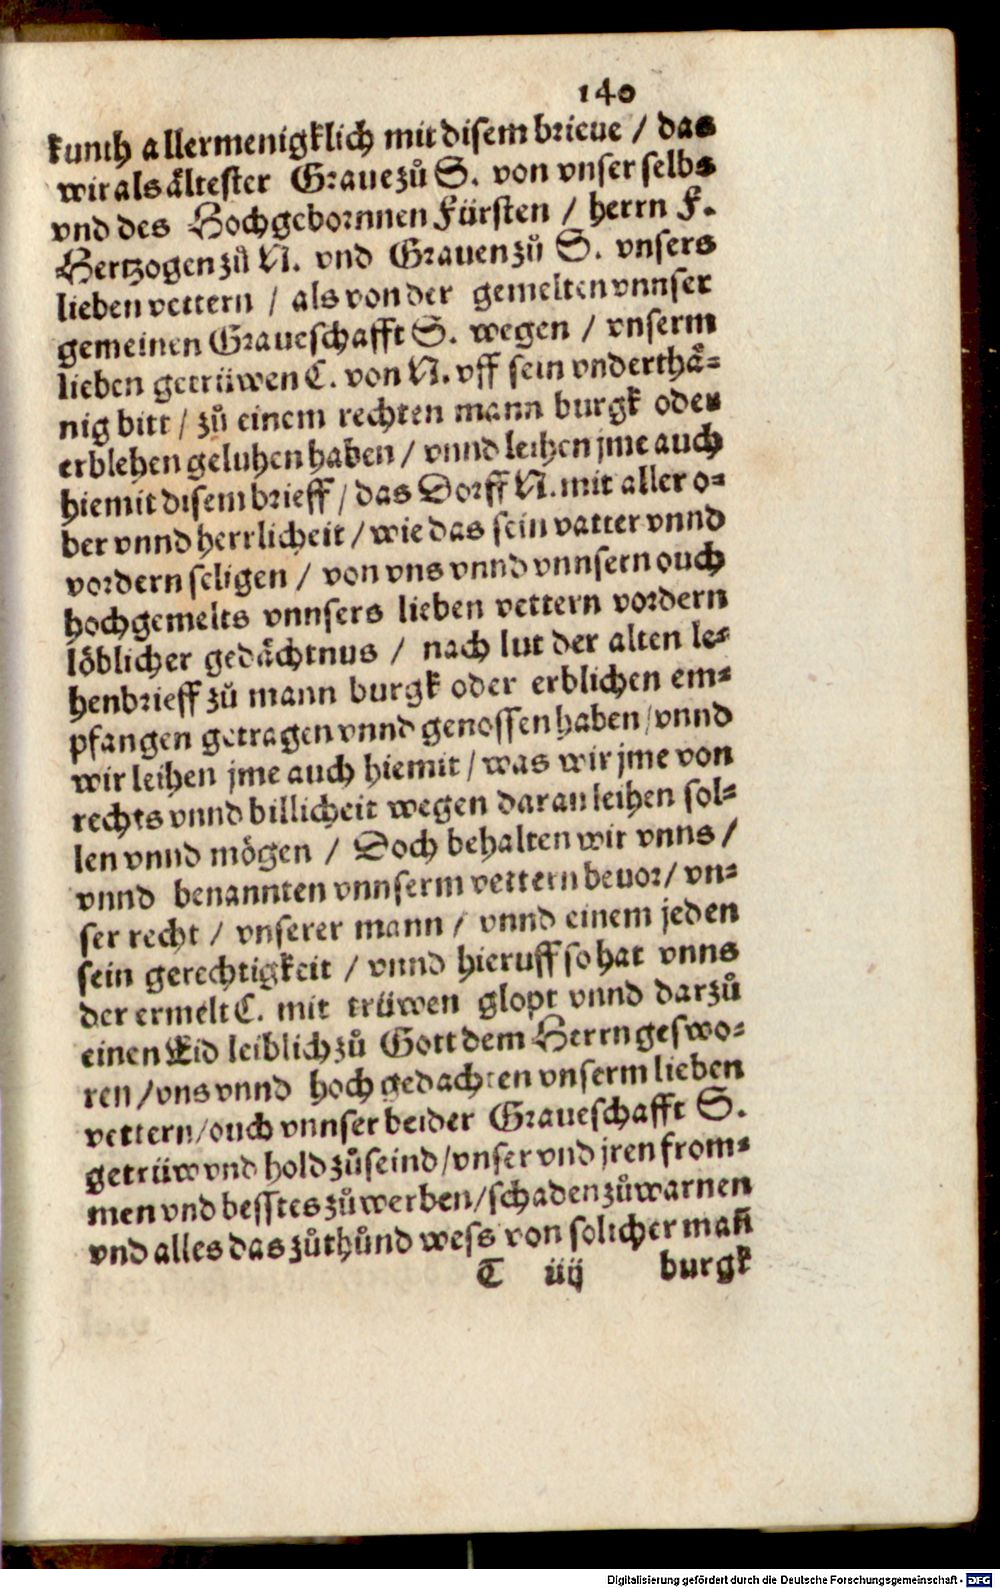 140
kunth allermenigklich mit disem brieue / das
wir als ältester Graue zů S. von vnser selbs
vnd des Hochgebornnen Fürsten / herrn F.
Hertzogen zů N. vnd Grauen zů S. vnsers
lieben vettern / als von der gemelten vnnser
gemeinen Graueschafft S. wegen / vnserm
lieben getrüwen C. von N. vff sein vnderthä⸗
nig bitt / zů einem rechten mann burgk oder
erblehen geluhen haben / vnnd leihen jme auch
hiemit disem brieff / das Dorff N. mit aller o⸗
ber vnnd herrlicheit / wie das sein vatter vnnd
vordern seligen / von vns vnnd vnnsern ouch
hochgemelts vnnsers lieben vettern vordern
löblicher gedächtnus / nach lut der alten le⸗
henbrieff zů mann burgk oder erblichen em⸗
pfangen getragen vnnd genossen haben / vnnd
wir leihen jme auch hiemit / was wir jme von
rechts vnnd billicheit wegen daran leihen sol⸗
len vnnd mögen / Doch behalten wir vnns /
vnnd benannten vnnserm vettern beuor / vn⸗
ser recht / vnserer mann / vnnd einem jeden
sein gerechtigkeit / vnnd hieruff so hat vnns
der ermelt C. mit trüwen glopt vnnd darzů
einen Eid leiblich zů Gott dem Herrn geswo⸗
ren / vns vnnd hoch gedachten vnserm lieben
vettern / ouch vnnser beider Graueschafft S.
getrüw vnd hold zů seind / vnser vnd jren from⸗
men vnd besstes zů werben / schaden zů warnen
vnd alles das zů thůnd wess von solicher man̄
T iiij burgk
Digitalisierung gefördert durch die Deutsche Forschungsgemeinschaft - DFG